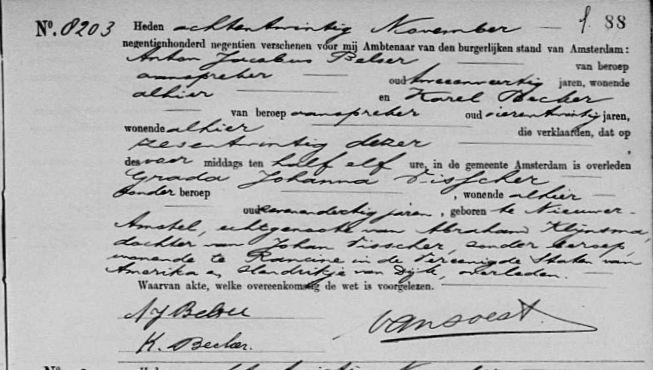 No. 8203 Heden achtentwintig November f. 88
negentienhonderd negentien verschenen voor mij Ambtenaar van den burgerlijken stand van Amsterdam:
Anton Jacobus Belser van beroep
aanspreker oud tweeenveertig jaren, wonende
alhier en Karel Becker
van beroep aanspreker oud vierentwintig jaren,
wonende alhier die verklaarden, dat op
zesentwintig dezer,
des voor middags ten half elf ure, in de gemeente Amsterdam is overleden
Grada Johanna Visscher
zonder beroep, wonende alhier
oud zevenendertig jaren, geboren te Nieuwer-
Amstel, echtgenoote van Abraham Klijnsma,
dochter van Johan Visscher, zonder beroep,
wonende te Rancine in de Vereenigde Staten van
Amerika en Hendrikje van Dijk, overleden.
Waarvan akte, welke overeenkomstig de wet is voorgelezen.
AJ Belser
van Soest
K. Becker.
No. Heden November